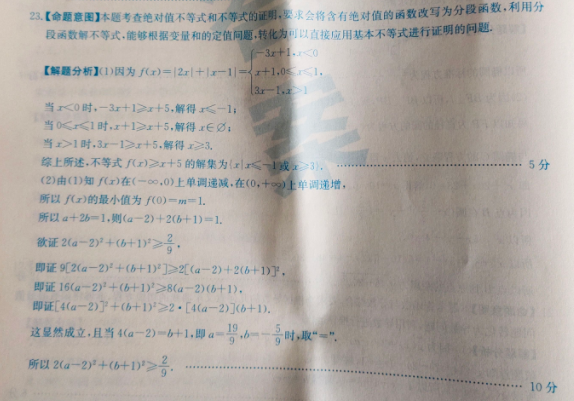 23.【命题意图】本题考查绝对值不等式和不等式的证明,要求会将含有绝对值的函数改写为分段函数,利用分
段函数解不等式,能够根据变量和的定值问题,转化为可以直接应用基本不等式进行证明的问题.
【解题分析】(1)因为 f(x)=|2x|+|x-1|={-3x+1,x<0
x+1,0≤x≤1,
3x-1,x>1
当 x<0 时,-3x+1≥x+5,解得 x≤-1;
当 0≤x≤1 时,x+1≥x+5,解得 x∈∅;
当 x>1 时,3x-1≥x+5,解得 x≥3.
综上所述,不等式 f(x)≥x+5 的解集为{x|x≤-1 或 x≥3}. …… 5 分
(2)由(1)知 f(x)在(-∞,0)上单调递减,在(0,+∞)上单调递增,
所以 f(x)的最小值为 f(0)=m=1.
所以 a+2b=1,则(a-2)+2(b+1)=1.
欲证 2(a-2)²+(b+1)²≥2/9,
即证 9[2(a-2)²+(b+1)²]≥2[(a-2)+2(b+1)]²,
即证 16(a-2)²+(b+1)²≥8(a-2)(b+1),
即证[4(a-2)]²+(b+1)²≥2·[4(a-2)](b+1).
这显然成立,且当 4(a-2)=b+1,即 a=19/9,b=-5/9 时,取“=”.
所以 2(a-2)²+(b+1)²≥2/9. …… 10 分